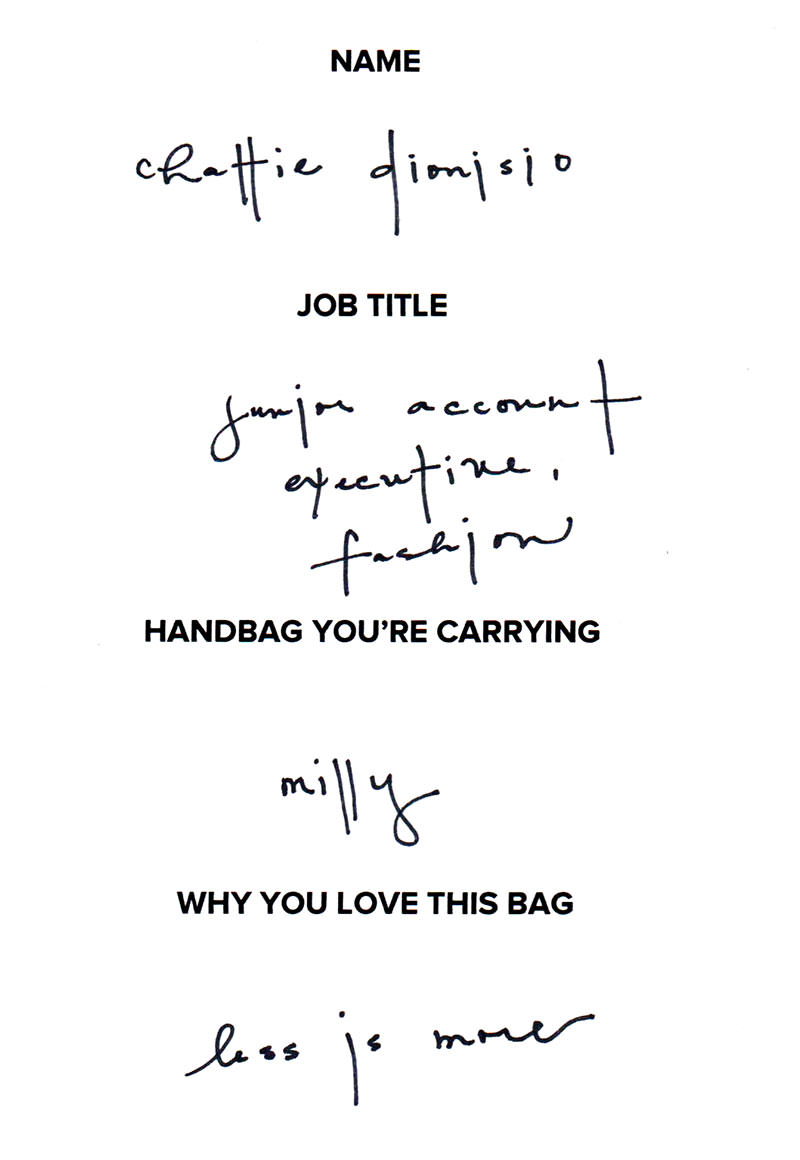 NAME
chattie dionisio
JOB TITLE
junior account
executive,
fashion
HANDBAG YOU'RE CARRYING
milly
WHY YOU LOVE THIS BAG
less is more